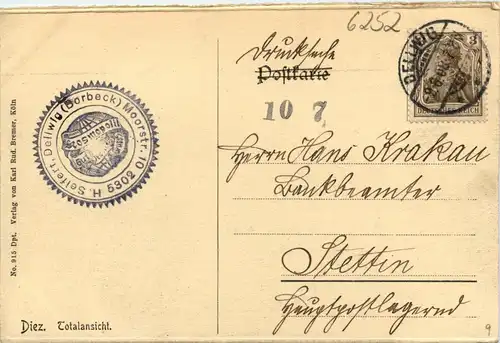 6252
Drucksache
Postkarte
DELLWIG
3
DEUTSCHES REICH
10 7
H. Seifert, Dellwig (Borbeck) Moorstr. 10
5302
Herrn Hans Krakau
Bankbeamter
Stettin
Hauptpostlagernd
No. 915 Dpt. Verlag von Karl Rud. Bremer, Köln
Diez. Totalansicht.
9